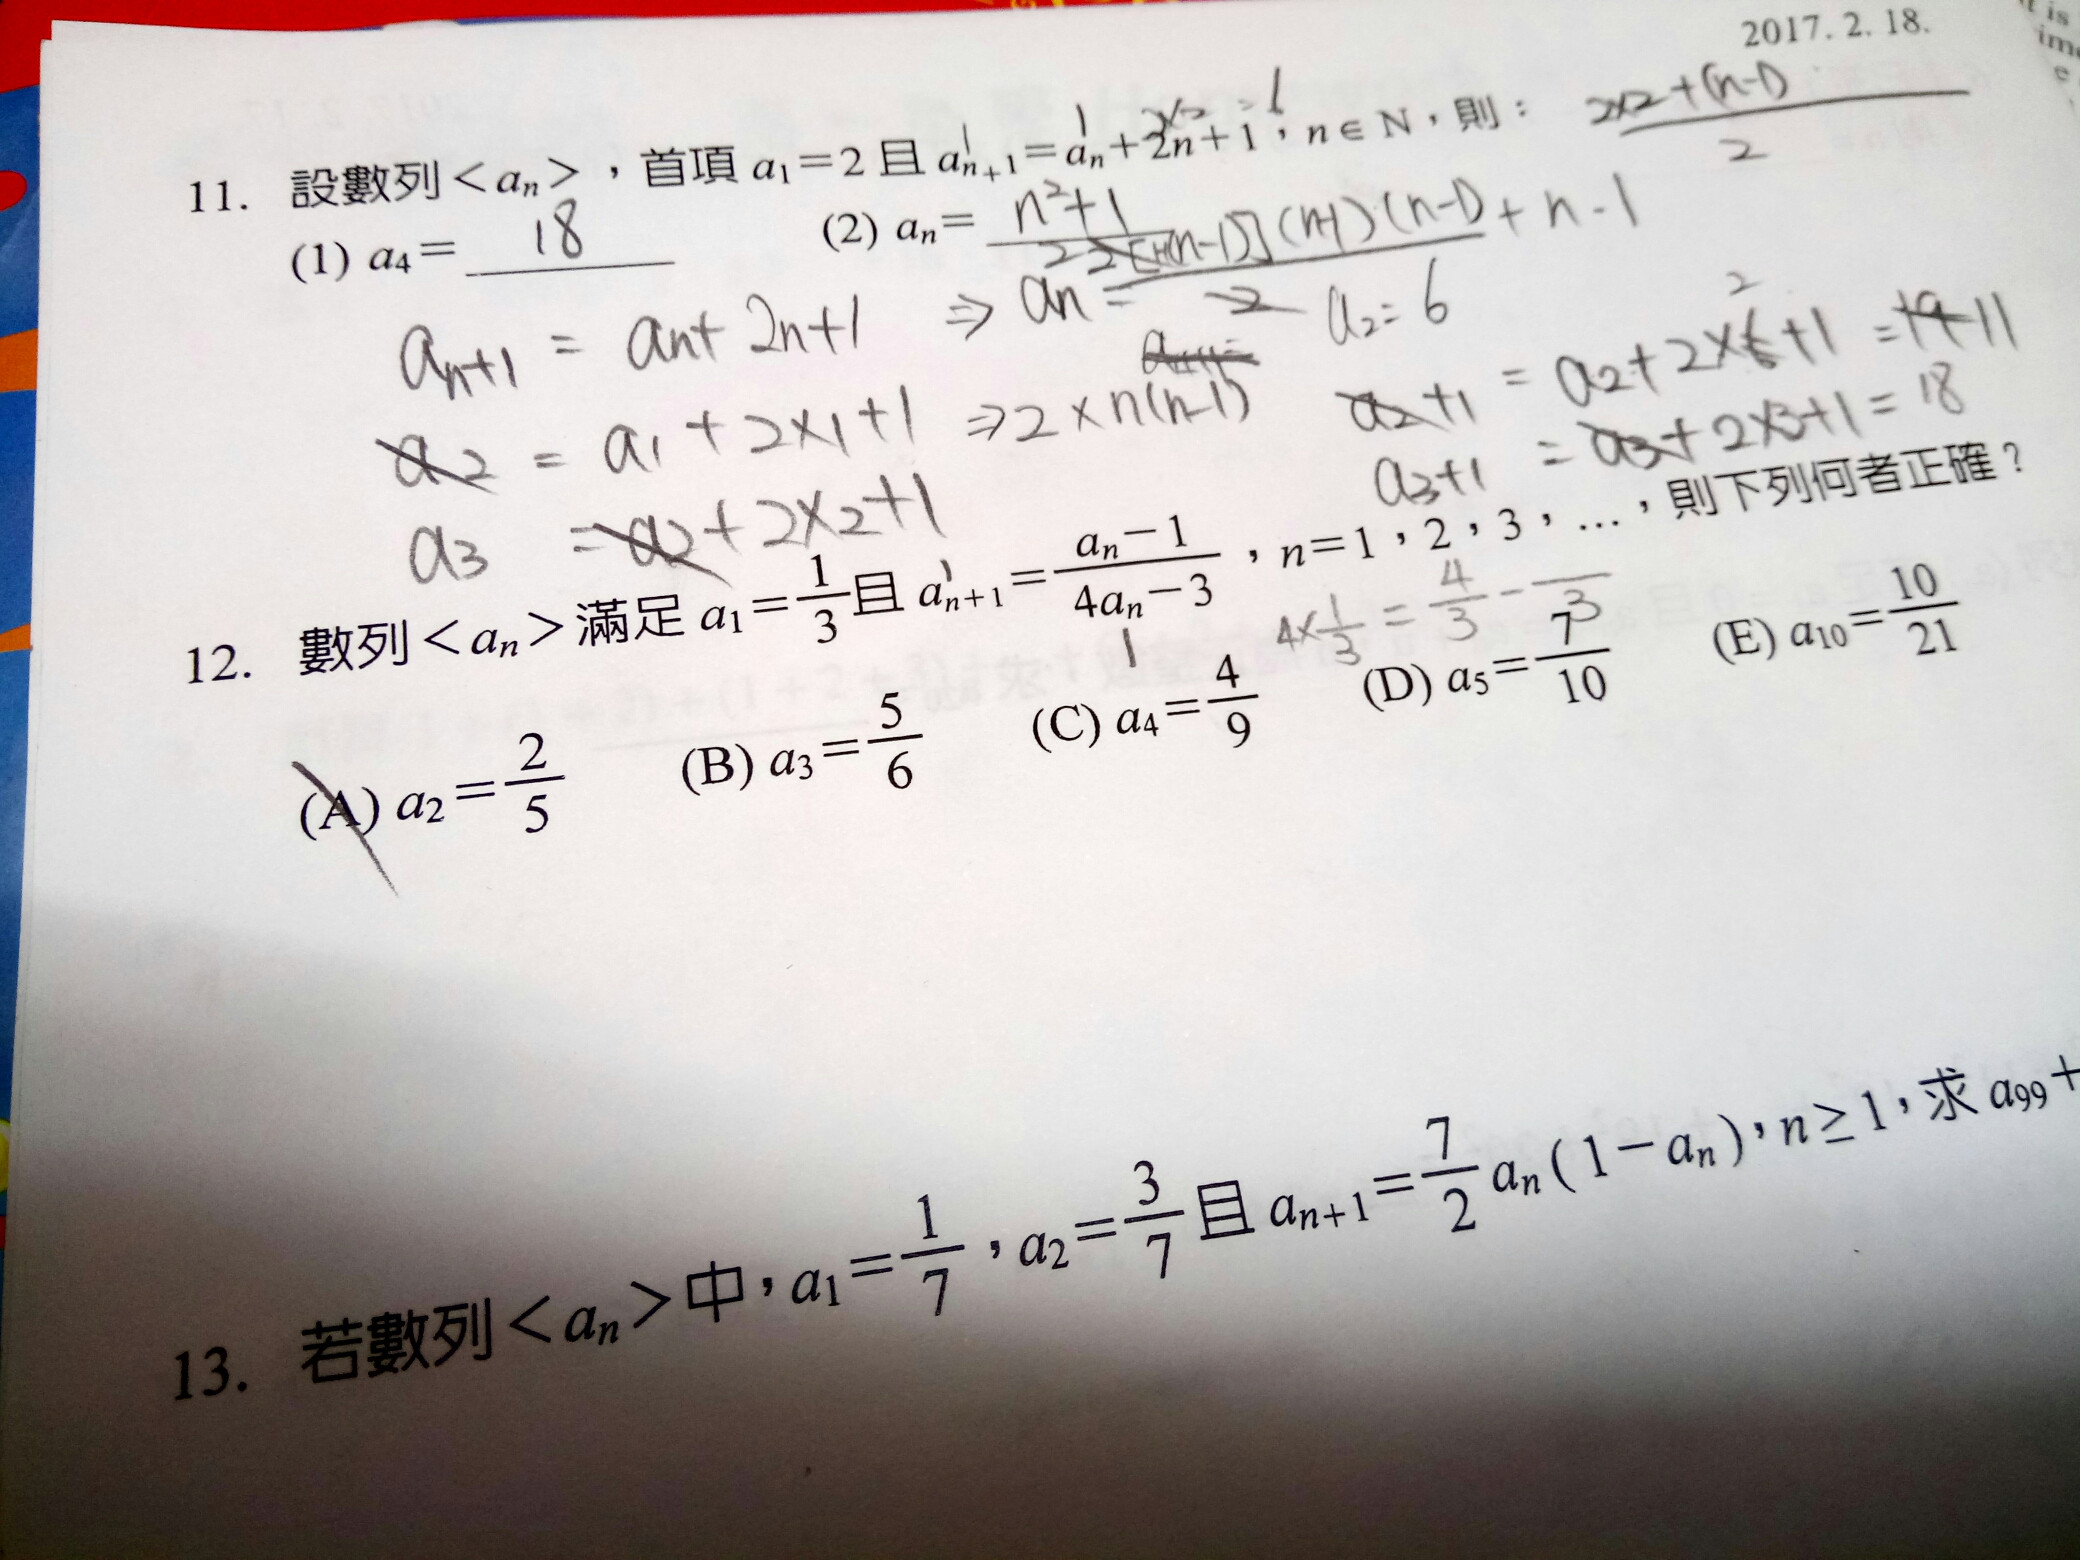 2017. 2. 18.
11. 設數列<aₙ>,首項 a₁=2 且 aₙ₊₁=aₙ+2n+1,n∈N,則:
2×2+(n-1)
2
(1) a₄= 18 (2) aₙ= n²+1
(n-1)+n-1
aₙ₊₁ = aₙ+ 2n+1 ⇒ aₙ = 2
a₂=6
a₂ = a₁+2×1+1 ⇒2×n(n-1)
a₂+1 = a₂+2×2+1 = 11
a₃ = a₂+2×2+1
a₃+1 = a₃+2×3+1=18
12. 數列<aₙ>滿足 a₁=1/3 且 aₙ₊₁=(aₙ-1)/(4aₙ-3),n=1,2,3,…,則下列何者正確?
4×1/3 = 4/3 -
(A) a₂=2/5 (B) a₃=5/6 (C) a₄=4/9 (D) a₅=7/10 (E) a₁₀=10/21
13. 若數列<aₙ>中,a₁=1/7,a₂=3/7 且 aₙ₊₁=7/2 aₙ(1-aₙ),n≥1,求 a₉₉+